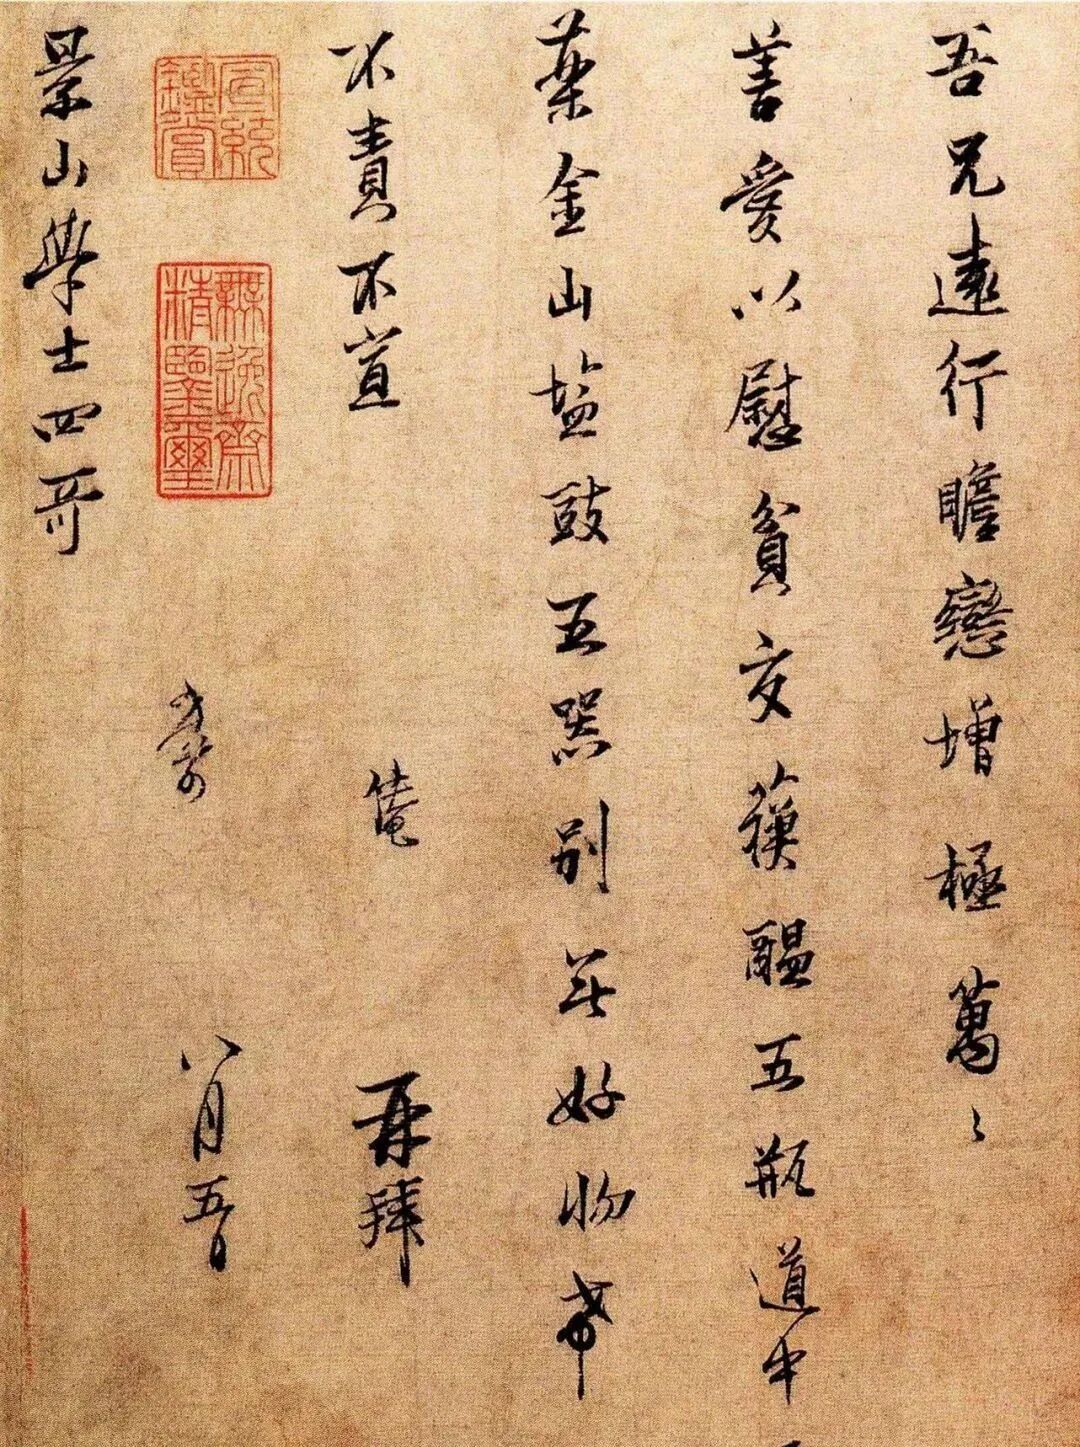 吾兄遠行瞻戀增極萬〻
善愛以慰貧交蘓醖五瓶道中
藥金山塩豉五器別无好物希
不責不宣
再拜
八月五日
景山學士四哥
宣統
鑒賞
無逸齋
精鑒璽